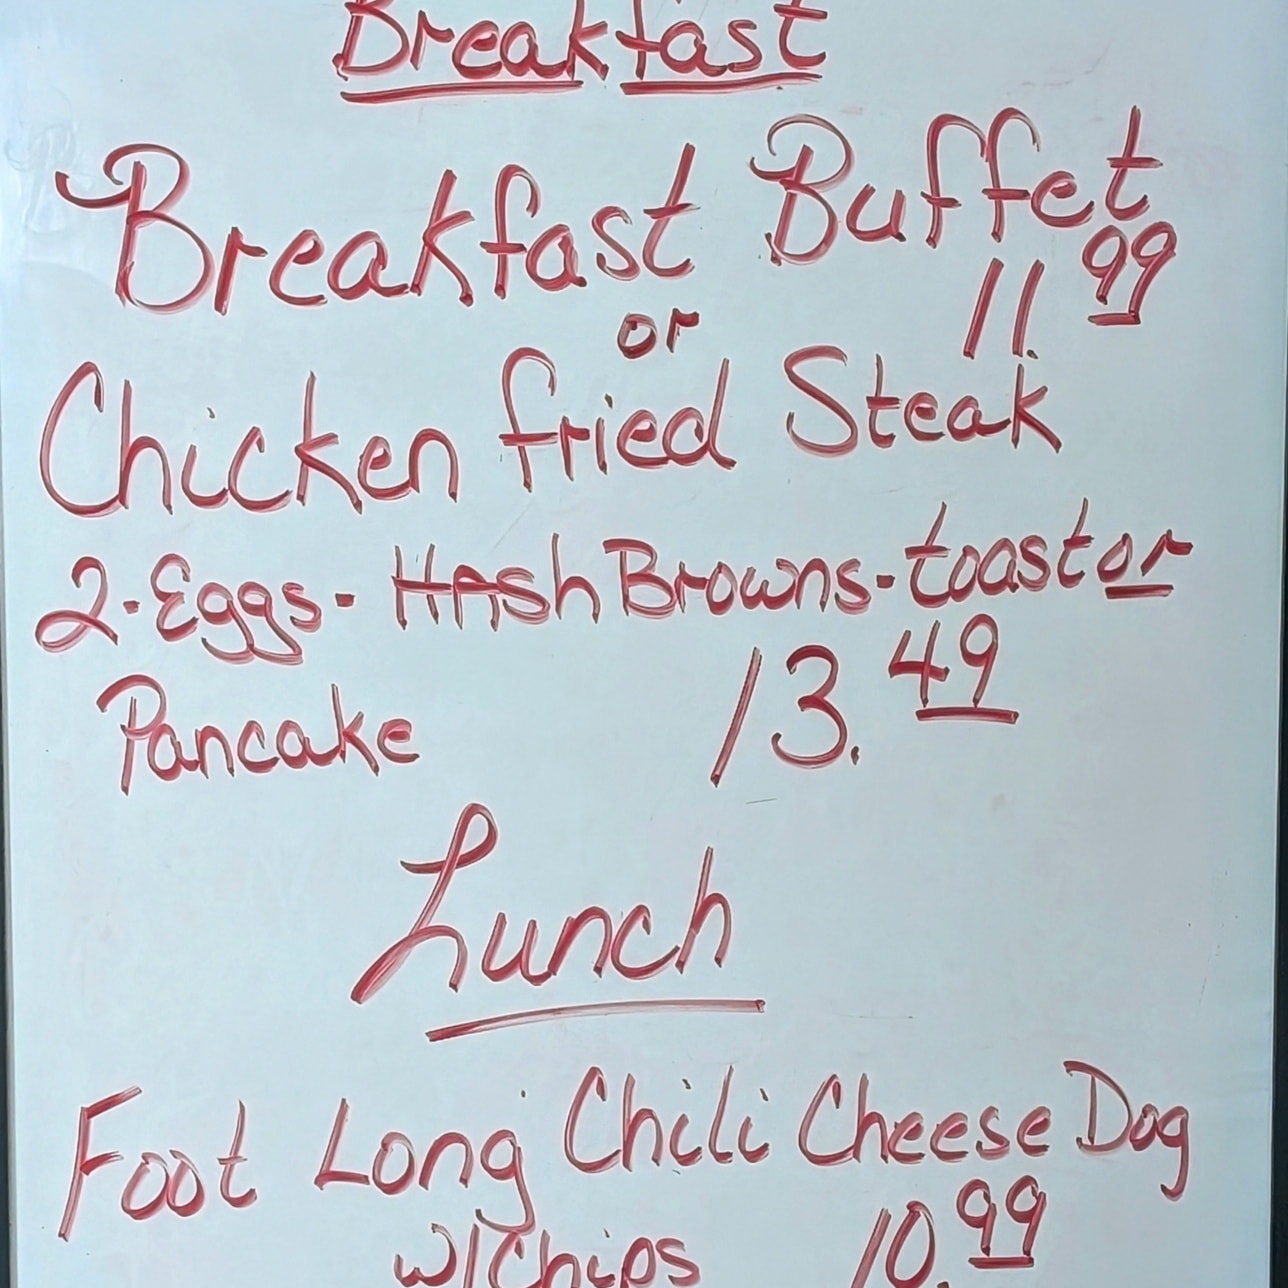 Breakfast
Breakfast Buffet
11.99
or
Chicken fried Steak
2-Eggs-HAshBrowns-toast or
Pancake 13.49
Lunch
Foot Long Chili Cheese Dog
w/Chips 10.99